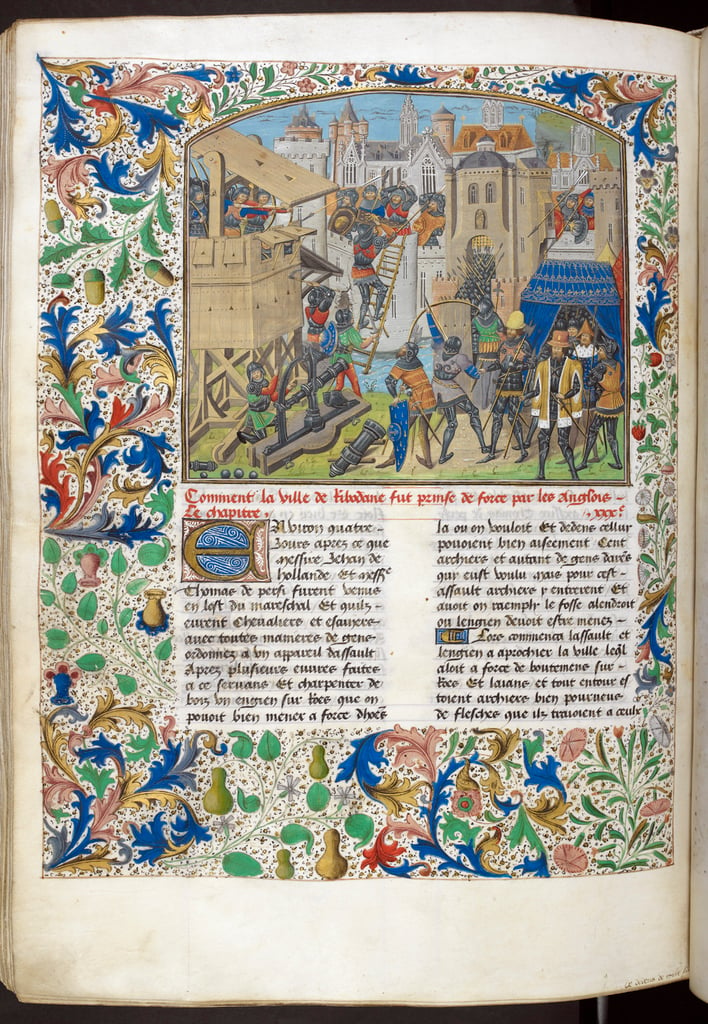 Comment la ville de Ribodane fut prinse de force par les Anglois
Le chapitre xxxe
Auiron quatre
Jours apres ce que
messire Jehan de
hollande Et messe
Thomas de persi furent venus
en lost du mareschal Et quilz
eurent Cheualiers et escuiers
auec toutes manieres de gens
ordonnez a vn appareil dassault
Apres plusieurs euures faites
a ce seruans Et charpenter de
bois vn engien sur Roes que on
pouoit bien mener a force dhoes
la ou on vouloit Et dedens cellui
pouoient bien aiseement Cent
archiers et autant de gens darmes
qui eust voulu mais pour cest
assault archiers y entrerent Et
auoit on raemply le fosse alendroit
ou lengien deuoit estre menez
Lors commenca lassault et
lengien a aprochier la ville leql
aloit a force de boutemens sur
Roes Et laians et tout entour es
toient archiers bien pourueus
de flesches que ilz traioient a ceulx